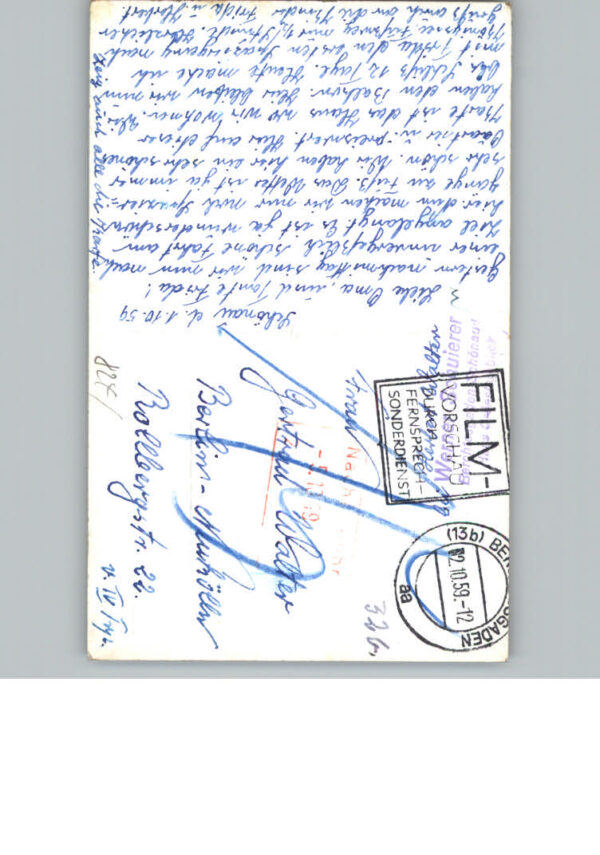 Schönau d. 1.10.59
Liebe Oma, und Tante Frida!
Gestern nachmittag sind wir nun nach
einer unvergeßlich schöne Fahrt am
Ziel angelangt. Es ist ja wunderschön
hier oben machen wir nur noch Spazier=
gänge zu Fuß. Das Wetter ist ja immer
sehr schön. Wir haben hier ein sehr schönes
Quartier u. preiswert. Hier auf dieser
Karte ist das Haus wo wir wohnen. Wir
haben den Balkon. Hier bleiben wir nun
bis Schluß 12 Tage. Heute mache ich
mit Frida den ersten Spaziergang nach
Königssee, Fußweg nur 1/2 Stunde. Herzlicher
Gruß auch an die Kinder Frida u. Herbert
alle die
FILM-
VORSCHAU
DURCH
FERNSPRECH-
SONDERDIENST
(13b)
2.10.59.-12
aa
Frau
Gertrud Walter
Berlin-Neukölln
Rollbergstr. 22.
v. IV Trp.